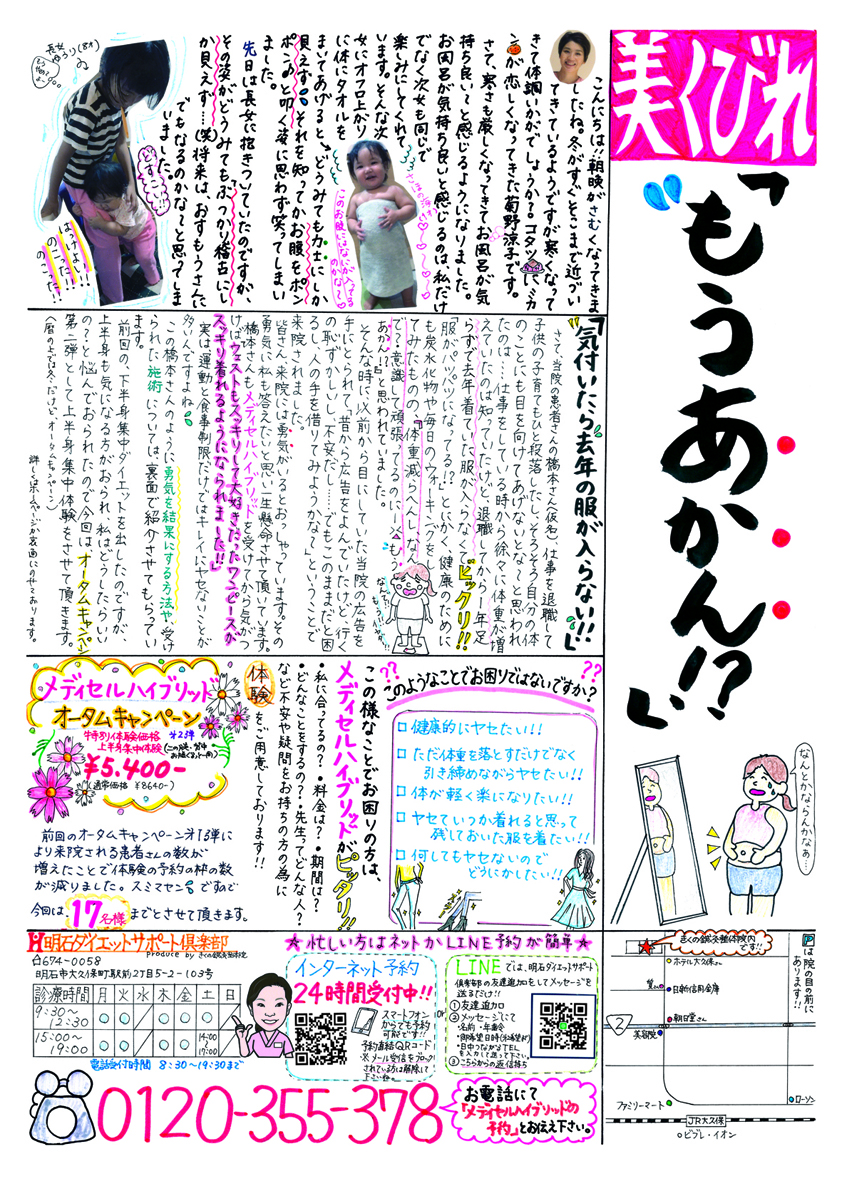 美くびれ
「もうあかん!?」
なんとかならんかなぁ…
こんにちは!朝晩がさむくなってきま
したね。冬がすぐそこまで近づい
てきているようですが寒くなって
きて体調いかがでしょうか?コタツにミカ
ンが恋しくなってきた菊野涼子です。
さて、寒さも厳しくなってきてお風呂が気
持ち良い〜と感じるようになりました。
お風呂が気持ち良いと感じるのは私だけ
でなく次女も同じで
楽しみにしてくれて
います。そんな次
女にオフロ上がり
に体にタオルを
まいてあげると→どうみても力士にしか
見えず それを知ってかお腹をポン
ポンと叩く姿に思わず笑ってしまい
ました。
先日は長女に抱きついていたのですが、
その姿がどうみてもぶつかり稽古にし
か見えず…(笑)将来は、おすもうさんに
でもなるのかな〜と思ってしま
いました。
このお腹にはなにが入ってる
のかな〜
長女
(8才)
どすこい!!
はっけよーい!!
のこった!!
のこった!!
「気付いたら去年の服が入らない!!」
さて、当院の患者さんの橋本さん(仮名)、仕事を退職して
子供の子育てもひと段落したし、そろそろ自分の体
のことにも目を向けてあげないとな〜と思われ
たのは…仕事をしている時から徐々に体重が増
えていたのは知っていたけど、退職してから1年足
らずで去年着ていた服が入らなくてビックリ!!
「服がパツパツになってる!?」とにかく、健康のために
も炭水化物や毎日のウォーキングをし
てみたものの、「体重減らへんし、なん
で?意識して頑張ってるのに…もう
あかん!?」と思われていました。
そんな時に以前から目にしていた当院の広告を
手にとられて、「昔から広告をよんでいたけど、行く
の恥ずかしいし、不安だし…でもこのままだと困
るし、人の手を借りてみようかな?」ということで
来院されました。
皆さん、来院には勇気がいるとおっしゃっています。その
勇気に私も答えたいと思い一生懸命させて頂いてます。
橋本さんもメディセルハイブリッドを受けてから気がつ
けばウエストもスッキリして大好きだったワンピースが
スッキリ着れるようになられました!!
実は運動と食事制限だけではキレイにヤセないことが
多いんですよね
この橋本さんのように勇気を結果にする方法や、受け
られた施術については、裏面で紹介させてもらってい
ます。
前回の、下半身集中ダイエットを出したのですが、
上半身も気になる方がおられ、私はどうしたらいい
の?と悩んでおられたので今回は、オータムキャンペーン
第二弾として上半身集中体験をさせて頂きます。
(暦の上では冬だけど、オータムキャンペーン)
詳しくはホームページか裏面にのせております。
??このようなことでお困りではないですか???
□健康的にヤセたい!!
□ただ体重を落とすだけでなく
引き締めながらヤセたい!!
□体が軽く楽になりたい!!
□ヤセていつか着れると思って
残しておいた服を着たい!!
□何してもヤセないので
どうにかしたい!!
この様なことでお困りの方は、
メディセルハイブリッドがピッタリ!!
・私に合ってるの?・料金は?・期間は?
・どんなことをするの?・先生ってどんな人?
など不安や疑問をお持ちの方の為に
体験をご用意しております!!
メディセルハイブリッド
オータムキャンペーン
特別体験価格 第2弾
上半身集中体験
¥5.400-
(通常価格 ¥8640-)
前回のオータムキャンペーン第1弾に
より来院される患者さんの数が
増えたことで体験の予約の枠の数
が減りました。スミマセン ですので
今回は、17名様までとさせて頂きます。
明石ダイエットサポート倶楽部
Produce by きくの鍼灸整体院
〒674-0058
明石市大久保町駅前2丁目5-2-103号
診療時間 月 火 水 木 金 土 日
9:30〜12:30
15:00〜19:00
14:00〜17:00
電話受付時間 8:30〜19:30まで
☆忙しい方はネットかLINE予約が簡単☆
インターネット予約
24時間受付中!!
スマートフォン
からでも予約
可能です!!
予約直結QRコード
※メール受信をブロック
されている方は解除して
下さいね。
or
LINEでは、明石ダイエットサポート
倶楽部の友達追加をしてメッセージを
送るだけ!!
①友達追加
②メッセージにて
・名前・年齢
・御希望日時(体験希望)
・日中つながるTEL
を入力して送って下さい。
③こちらからの返信待ち
0120-355-378
お電話にて
「メディセルハイブリッドの
予約」とお伝え下さい。
きくの鍼灸整体院内
です!!
Pは院の目の前に
あります!!
ホテル大久保さん
日新信用金庫
朝日堂さん
美容院
2
ファミリーマート
ローソン
JR大久保
○ビブレ・イオン